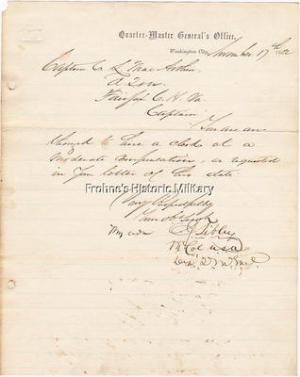 Quarter-Master General's Office,
Washington City, November 17th 1862
Captain C. L.
Fairfax C. H. Va.
Captain
You are au
thorized to hire a clerk at a
moderate compensation, as requested
in your letter of this date.
Very Respectfully
Your Obt Servt
By order E. S. Sibley
Col USA
Frohne's Historic Military